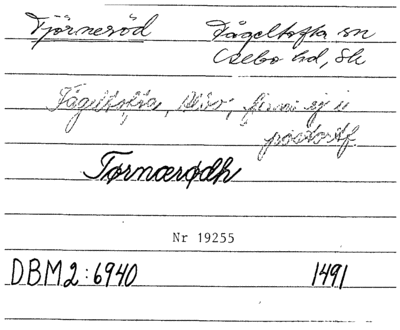 Tjörneröd Fågeltofta sn
Osebo hd, Sk
Fågeltofta, finns ej i
Tørnærødh
Nr 19255
DBM2:6940 1491